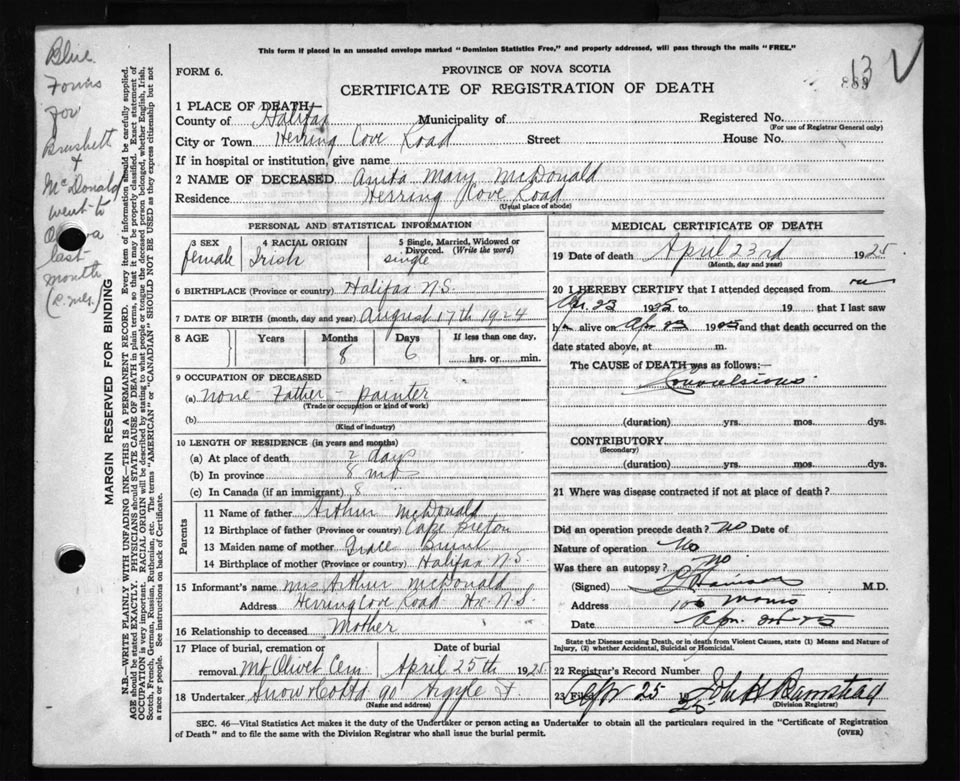 This form if placed in an unsealed envelope marked "Dominion Statistics Free," and properly addressed, will pass through the mails "FREE."
FORM 6.
PROVINCE OF NOVA SCOTIA
13
CERTIFICATE OF REGISTRATION OF DEATH
1 PLACE OF DEATH—
County of Halifax Municipality of Registered No.
(For use of Registrar General only)
City or Town Herring Cove Road Street House No.
If in hospital or institution, give name
2 NAME OF DECEASED Anita Mary McDonald
Residence Herring Cove Road
(Usual place of abode)
PERSONAL AND STATISTICAL INFORMATION
3 SEX 4 RACIAL ORIGIN 5 Single, Married, Widowed or Divorced. (Write the word)
female Irish single
6 BIRTHPLACE (Province or country) Halifax N.S.
7 DATE OF BIRTH (month, day and year) August 17th 1924
8 AGE Years Months Days If less than one day,
8 6 hrs. or min.
9 OCCUPATION OF DECEASED
(a) none - Father - painter
(Trade or occupation or kind of work)
(b)
(Kind of industry)
10 LENGTH OF RESIDENCE (in years and months)
(a) At place of death 2 days
(b) In province 8 mos
(c) In Canada (if an immigrant) 8
Parents
11 Name of father Arthur McDonald
12 Birthplace of father (Province or country) Cape Breton
13 Maiden name of mother Grace
14 Birthplace of mother (Province or country) Halifax N.S.
15 Informant's name Mrs Arthur McDonald
Address Herring Cove Road Hx. N.S.
16 Relationship to deceased Mother
17 Place of burial, cremation or removal Date of burial
Mt Olivet Cem April 25th 1925
18 Undertaker Snow & Co Ltd 90 Argyle St.
(Name and address)
MEDICAL CERTIFICATE OF DEATH
19 Date of death April 23rd 1925
(Month, day and year)
20 I HEREBY CERTIFY that I attended deceased from
Apr. 23 1925 to 19 that I last saw
h alive on Apr 23 1925 and that death occurred on
date stated above, at m.
The CAUSE of DEATH was as follows:—
Convulsions
(duration) yrs. mos. dys.
CONTRIBUTORY
(Secondary)
(duration) yrs. mos. dys.
21 Where was disease contracted if not at place of death?
Did an operation precede death? no Date of
Nature of operation No
Was there an autopsy? no
(Signed) M.D.
Address 106 Morris
Date Apr.
State the Disease causing Death, or in death from Violent Causes, state (1) Means and Nature of Injury, (2) whether Accidental, Suicidal or Homicidal.
22 Registrar's Record Number
23 Filed Apr 25 1925 John H Barnstead
(Division Registrar)
SEC. 46—Vital Statistics Act makes it the duty of the Undertaker or person acting as Undertaker to obtain all the particulars required in the "Certificate of Registration
of Death" and to file the same with the Division Registrar who shall issue the burial permit.
(OVER)
MARGIN RESERVED FOR BINDING
N.B.—WRITE PLAINLY WITH UNFADING INK—THIS IS A PERMANENT RECORD. Every item of information should be carefully supplied.
AGE should be stated EXACTLY. PHYSICIANS should STATE CAUSE OF DEATH in plain terms, so that it may be properly classified. Exact statement of
OCCUPATION is very important. RACIAL ORIGIN will be described by stating to what people or tongue the deceased person belonged, whether English, Irish,
Scotch, French, German, Russian, Ruthenian, etc. The terms "AMERICAN" or "CANADIAN" SHOULD NOT BE USED as they express citizenship but not
a race or people. See instructions on back of Certificate.
Blue
Forms
for
Brushett
&
McDonald
went to
last
month